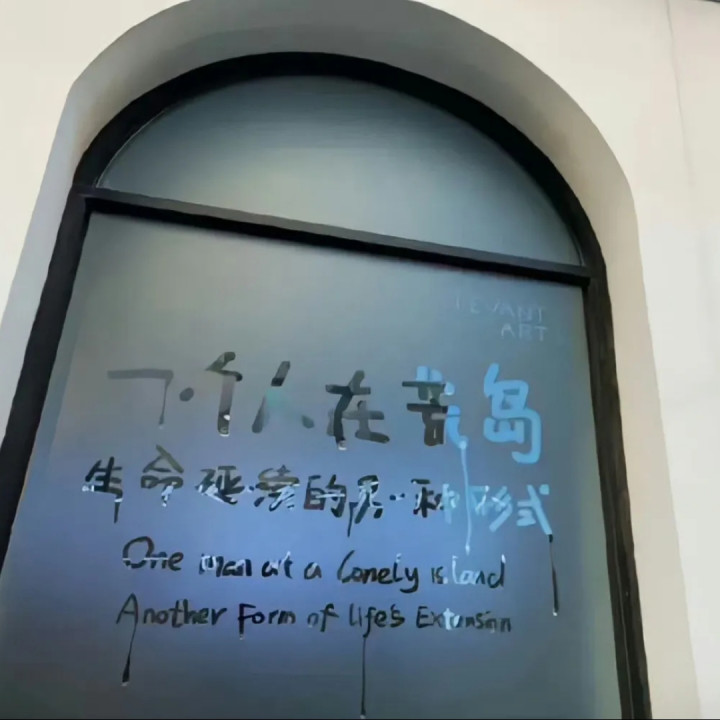 LEVANT
ART
一个人在荒岛
生命延续的另一种形式
One man at a Lonely island
Another Form of life's Extension